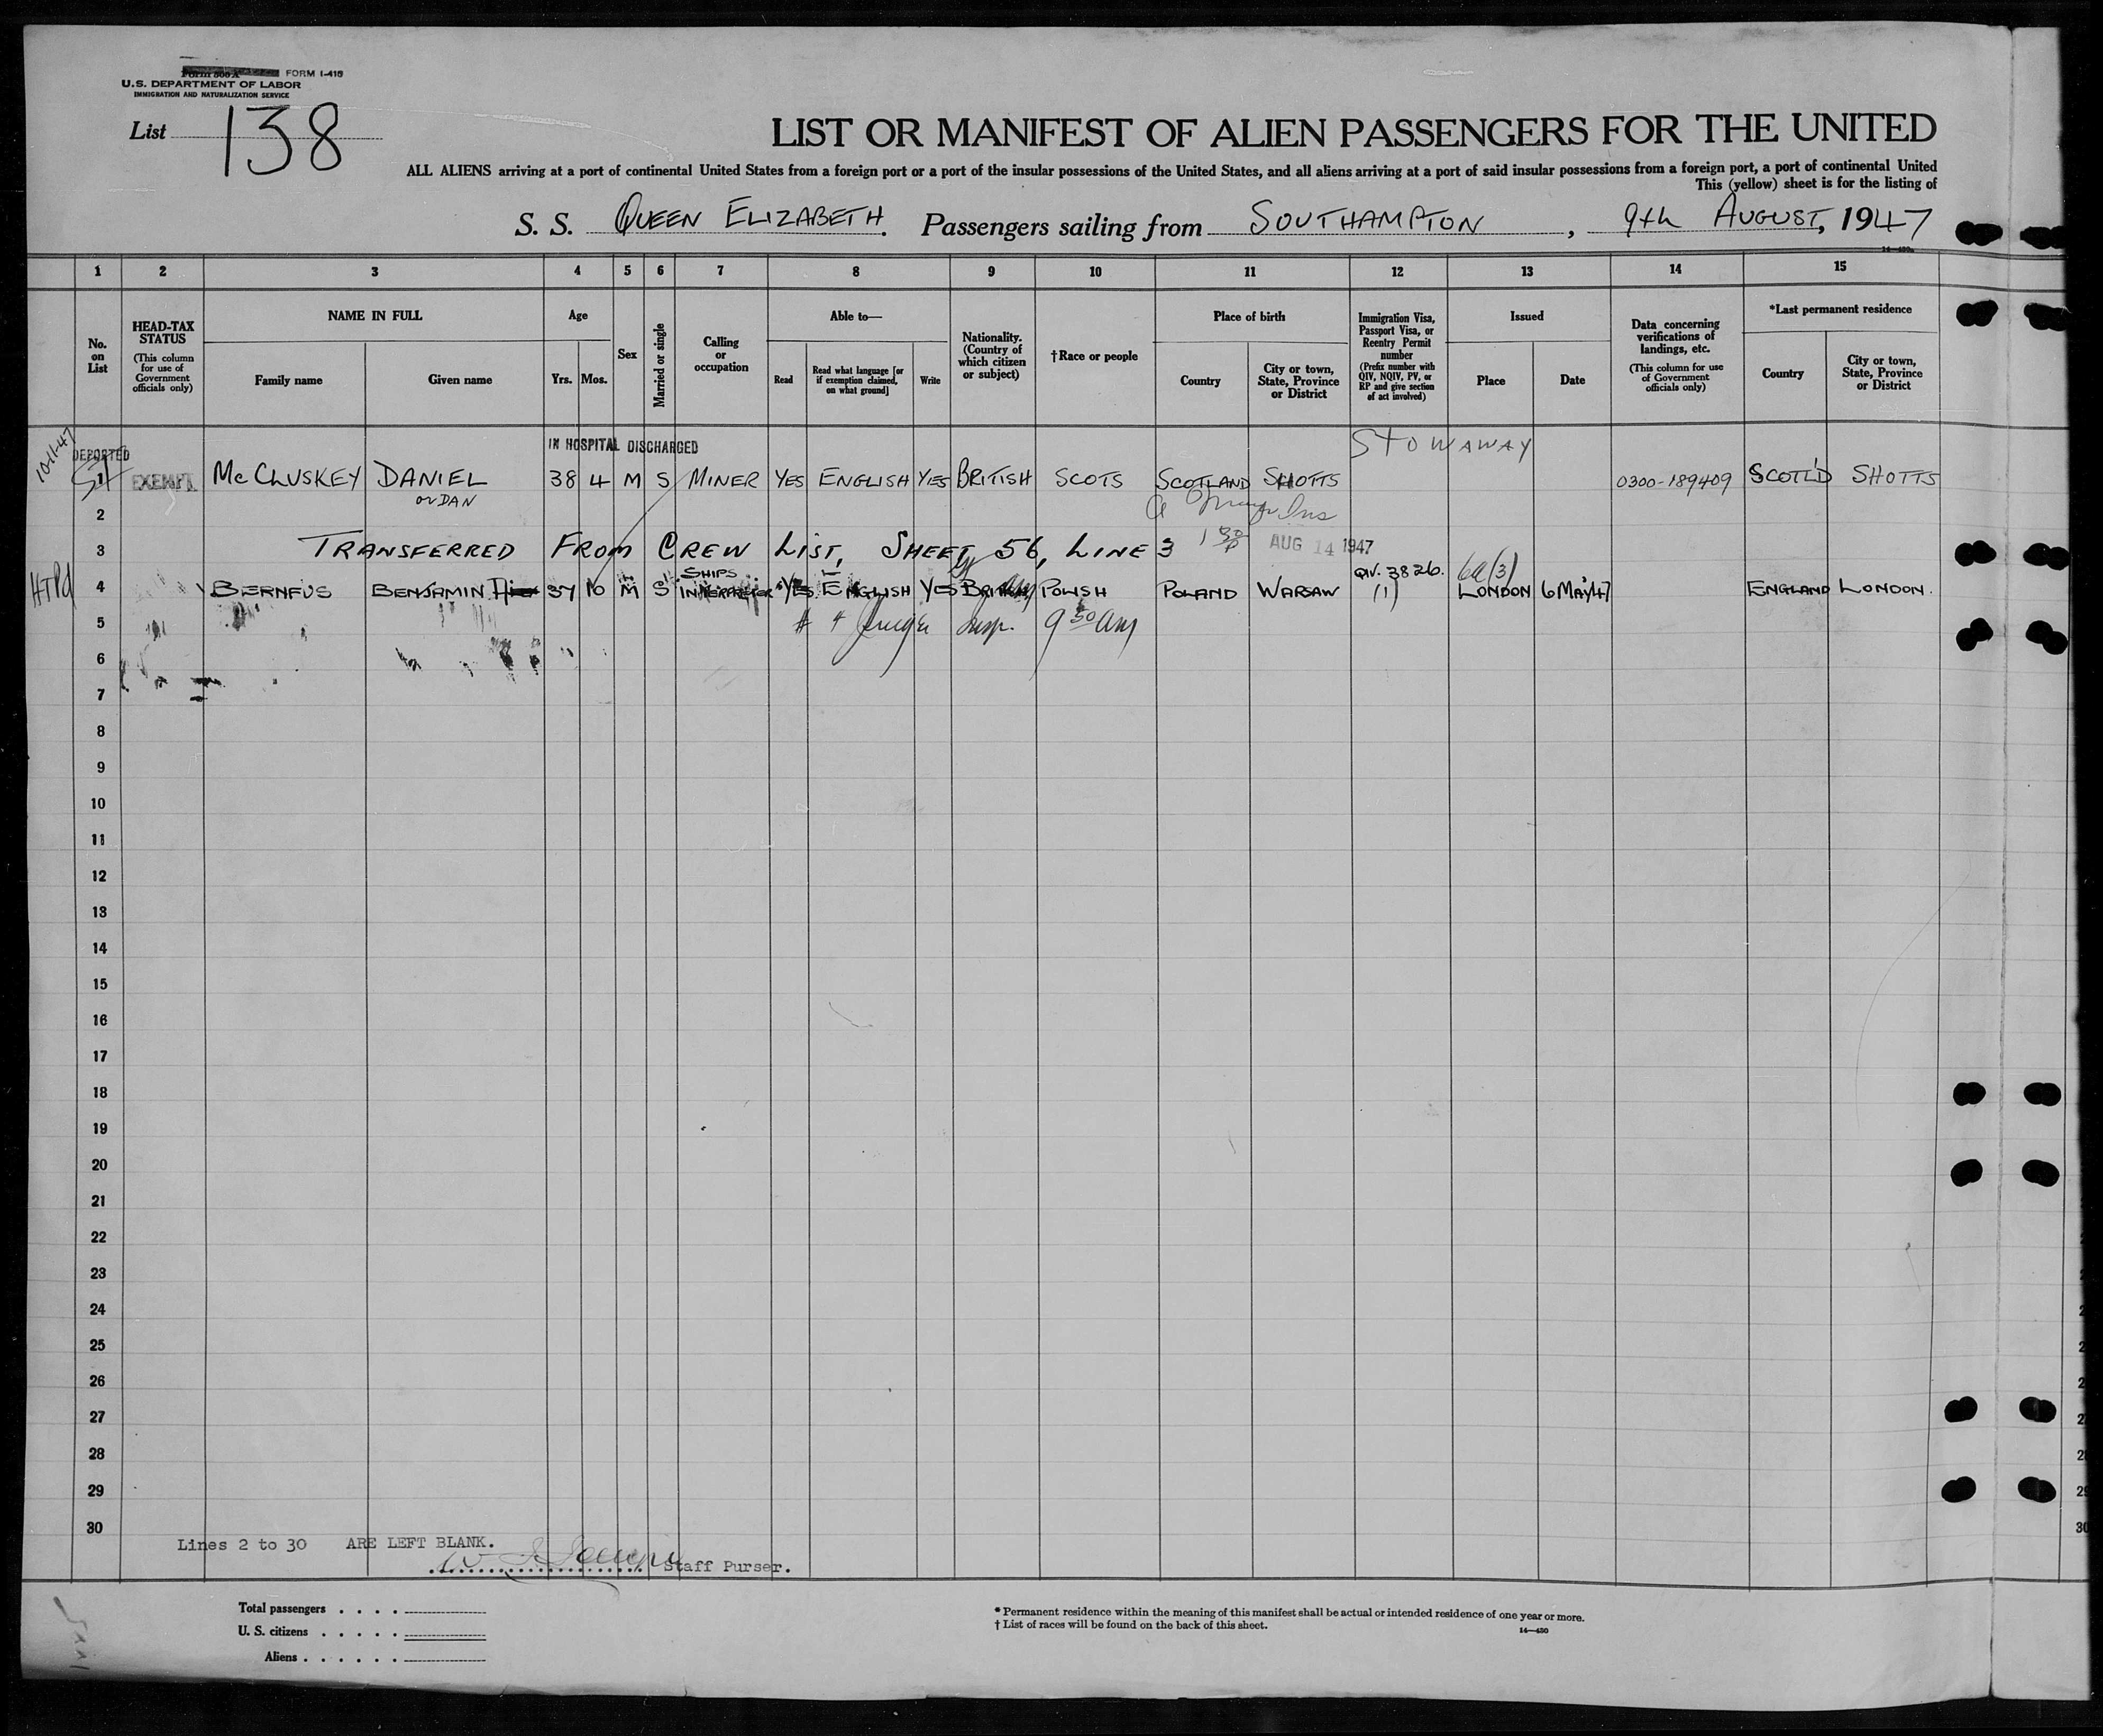 FORM I-416
U.S. DEPARTMENT OF LABOR
IMMIGRATION AND NATURALIZATION SERVICE
List 138
LIST OR MANIFEST OF ALIEN PASSENGERS FOR THE UNITED
ALL ALIENS arriving at a port of continental United States from a foreign port or a port of the insular possessions of the United States, and all aliens arriving at a port of said insular possessions from a foreign port, a port of continental United
This (yellow) sheet is for the listing of
S. S. QUEEN ELIZABETH. Passengers sailing from SOUTHAMPTON, 9th AUGUST, 1947
1 2 3 4 5 6 7 8 9 10 11 12 13 14 15
No. on List
HEAD-TAX STATUS (This column for use of Government officials only)
NAME IN FULL
Family name Given name
Age
Yrs. Mos.
Sex
Married or single
Calling or occupation
Able to—
Read Read what language [or if exemption claimed, on what ground] Write
Nationality. (Country of which citizen or subject)
†Race or people
Place of birth
Country City or town, State, Province or District
Immigration Visa, Passport Visa, or Reentry Permit number (Prefix number with QIV, NQIV, PV, or RP and give section of act involved)
Issued
Place Date
Data concerning verifications of landings, etc. (This column for use of Government officials only)
*Last permanent residence
Country City or town, State, Province or District
10-11-47
DEPORTED
IN HOSPITAL DISCHARGED
STOWAWAY
1 EXEMPT McCLUSKEY DANIEL 38 4 M S MINER YES ENGLISH YES BRITISH SCOTS SCOTLAND SHOTTS 0300-189409 SCOTL'D SHOTTS
or DAN
2
3 TRANSFERRED FROM CREW LIST, SHEET 56, LINE 3 1 30 P AUG 14 1947
SHIPS QIV. 3826. 6a(3)
HTPd 4 BERNFUS BENJAMIN 37 10 M S YES ENGLISH YES BRITISH POLISH POLAND WARSAW (1) LONDON 6 MAY 47 ENGLAND LONDON.
5 Insp. 9 30 am
6
7
8
9
10
11
12
13
14
15
16
17
18
19
20
21
22
23
24
25
26
27
28
29
30
Lines 2 to 30 ARE LEFT BLANK.
Staff Purser.
Total passengers
U. S. citizens
Aliens
* Permanent residence within the meaning of this manifest shall be actual or intended residence of one year or more.
† List of races will be found on the back of this sheet.
14—430